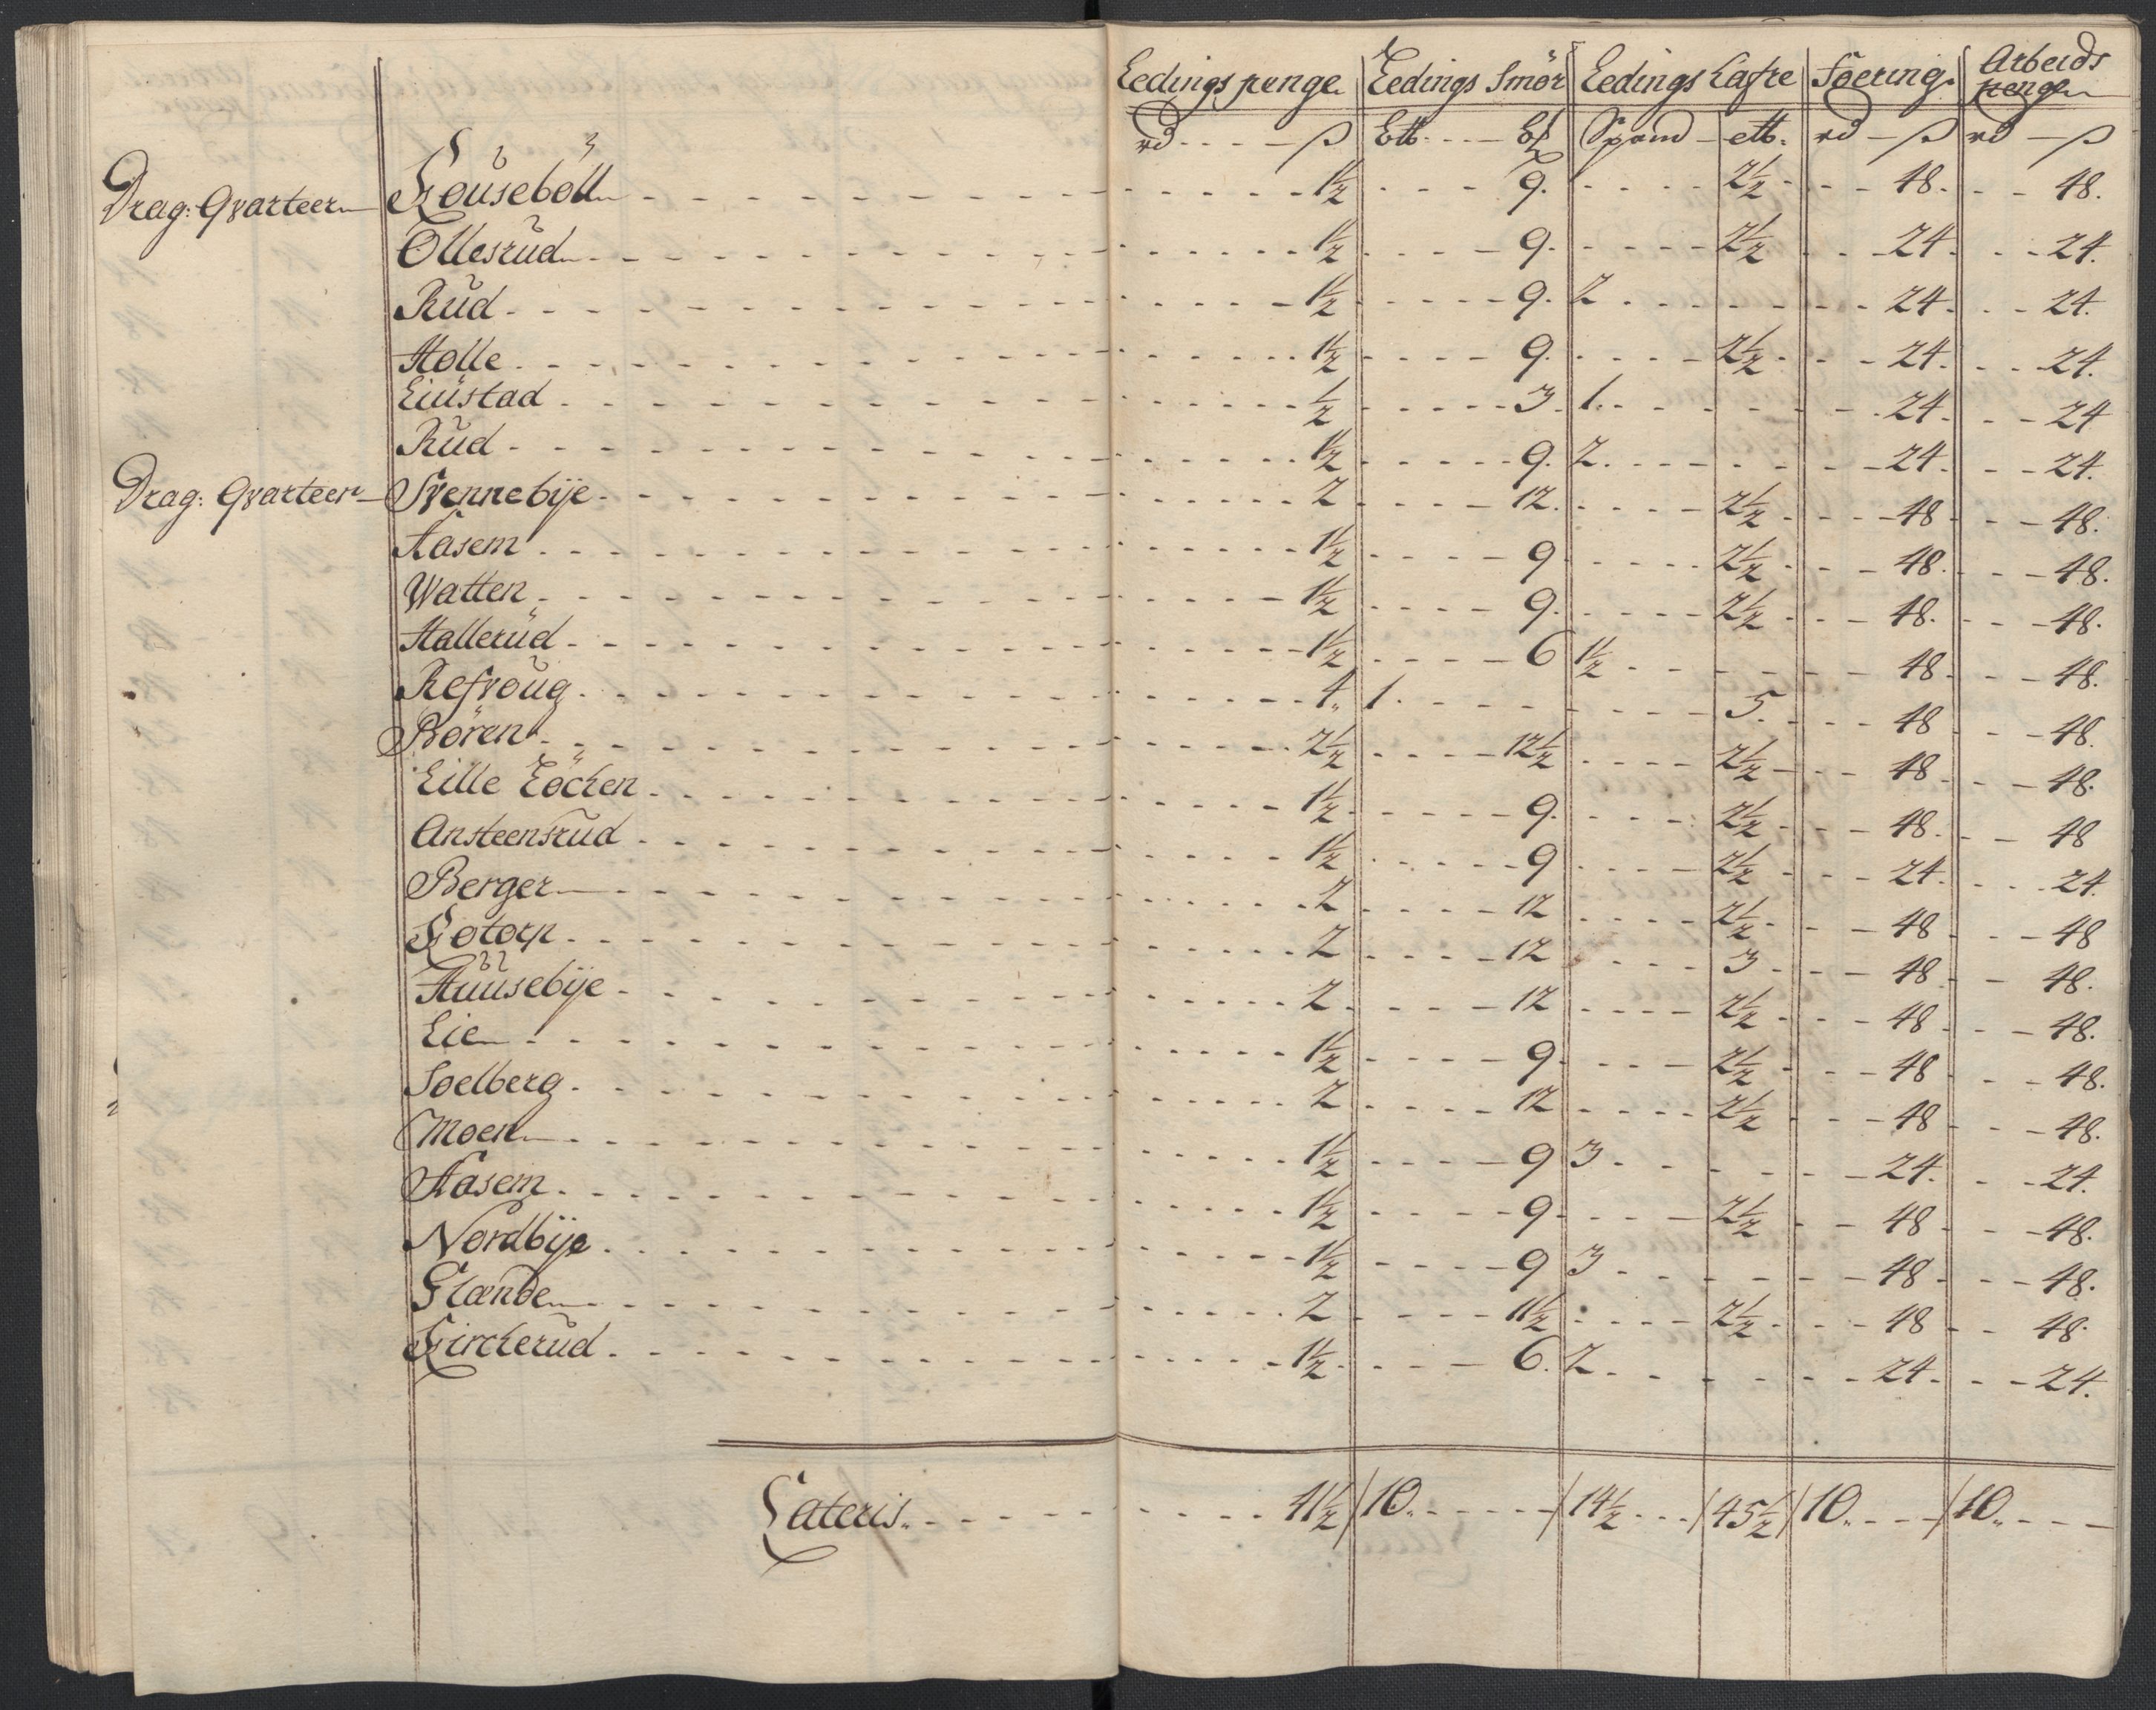 Ledings penge Ledings Smör Ledings Hafre Foering Arbeids penge
rd ß Ett. Spand ett. rd ß rd ß
Drag: Qvarteer Kousebøll 1½ 9. 2½ 48. 48.
Ollesrud 1½ 9. 2½ 24. 24.
Rud 1½ 9. 2 24. 24.
Holle 1½ 9. 2½ 24. 24.
Liustad ½ 3. 1. 24. 24
Rud 1½ 9. 2. 24. 24.
Drag: Qvarteer Svennebÿe 2 12. 2½ 48 48.
Aasem 1½ 9 2½ 48. 48.
Watten 1½ 9. 2½ 48. 48.
Hallerud 1½ 6 1½ 48. 48.
Refsoug 4. 1. 5. 48 48.
Bören 2½ 12½ 2½ 48 48.
Lille Löcken 1½ 9. 2½ 48. 48
Ansteensrud 1½ 9 2½ 24. 24.
Berger 2 12 2½ 48 48
Kotorp 2 12 3 48 48.
Huusebÿe 2 12 2½ 48 48.
Lie 1½ 9 2½ 48 48.
Soelberg 2 12 2½ 48 48.
Moen 1½ 9 3 24. 24.
Aasem 1½ 9 2½ 48 48.
Nordbÿe 1½ 9 3 48 48.
Glande 2 11½ 2½ 48 48.
Kircherud 1½ 6. 2 24. 24.
Lateris 41½ 10. 14½ 45½ 10. 10.